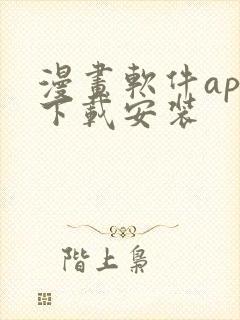 漫畫軟件ap
下載安裝
階上梟